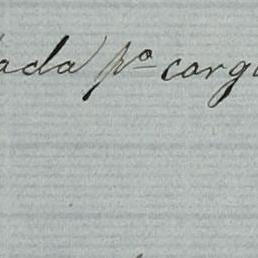 ada pª carg